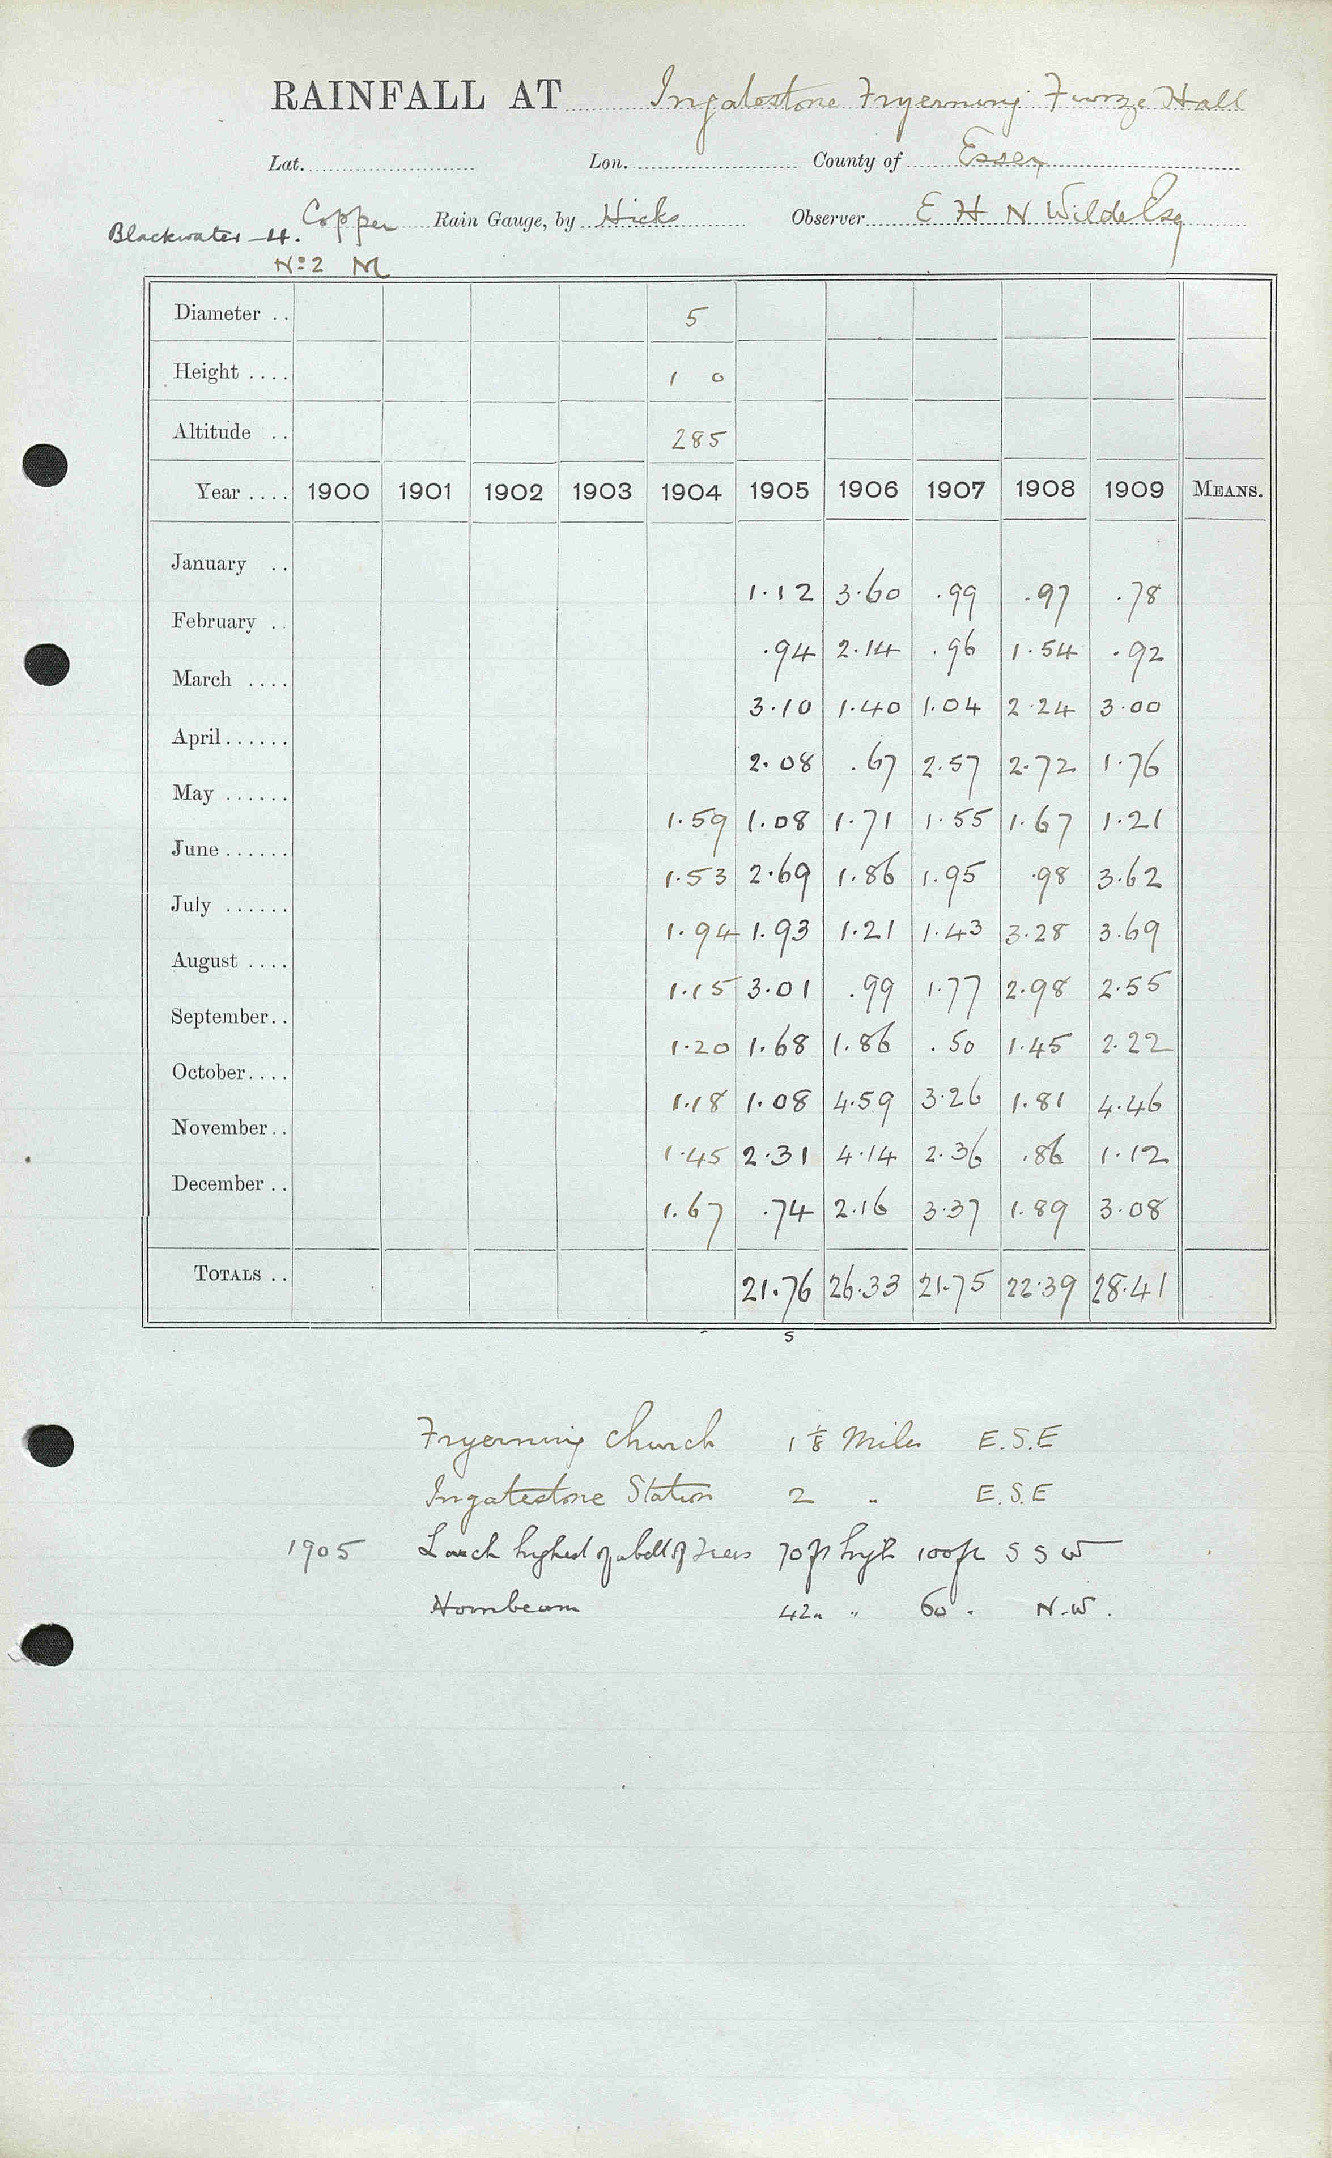 RAINFALL AT Ingatestone Fryerning Furze Hall
Lat. Lon. County of Essex
Blackwater 4. Copper Rain Gauge, by Hicks Observer E H N Wilde Esq
No 2 M
Diameter .. 5
Height .... 1 0
Altitude .. 285
Year .... 1900 1901 1902 1903 1904 1905 1906 1907 1908 1909 MEANS.
January .. 1.12 3.60 .99 .97 .78
February .. .94 2.14 .96 1.54 .92
March .... 3.10 1.40 1.04 2.24 3.00
April...... 2.08 .67 2.57 2.72 1.76
May ...... 1.59 1.08 1.71 1.55 1.67 1.21
June ...... 1.53 2.69 1.86 1.95 .98 3.62
July ...... 1.94 1.93 1.21 1.43 3.28 3.69
August .... 1.15 3.01 .99 1.77 2.98 2.55
September.. 1.20 1.68 1.86 .50 1.45 2.22
October.... 1.18 1.08 4.59 3.26 1.81 4.46
November.. 1.45 2.31 4.14 2.36 .86 1.12
December .. 1.67 .74 2.16 3.37 1.89 3.08
TOTALS .. 21.76 26.33 21.75 22.39 28.41
s
Fryerning Church 1 1/8 Miles E.S.E
Ingatestone Station 2 " E.S.E
1905 Larch highest of a belt of trees 70 ft high 100 ft S S W
Hornbeam 42 " " 60 . N.W.